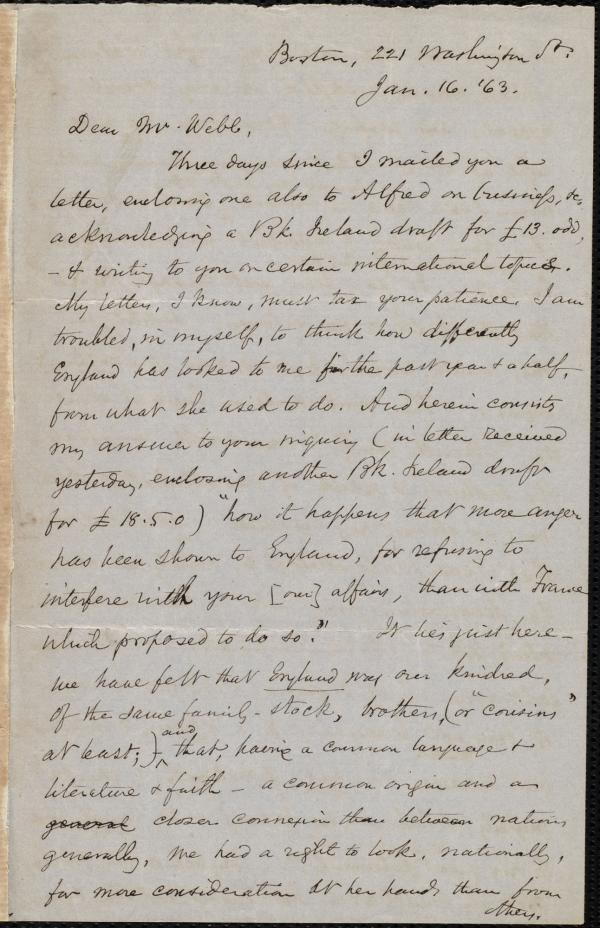 Boston, 221 Washington St.
Jan. 16. '63.
Dear Mr. Webb,
Three days since I mailed you a
letter, enclosing one also to Alfred on business, &c,
acknowledging a Bk. Ireland draft for £13. odd,
- & writing to you on certain international topics.
My letters, I know, must tax your patience. I am
troubled, in myself, to think how differently
England has looked to me for the past year & a half,
from what she used to do. And herein consists
my answer to your inquiry (in letter received
yesterday, enclosing another Bk. Ireland draft
for £18.5.0) "how it happens that more anger
has been shown to England, for refusing to
interfere with your [our] affairs, than with France
which proposed to do so?" It lies just here -
we have felt that England was our kindred,
of the same family-stock, brothers, (or "cousins"
at least;) - and that, having a common language &
literature & faith - a common origin and a
general closer connexion than between nations
generally, we had a right to look, nationally,
for more consideration at her hands than from
others.